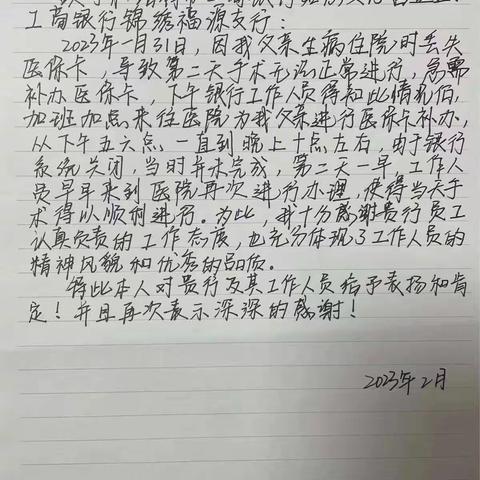 工商银行锦绣福源支行：
2023年一月31日，因我父亲生病住院时丢失
医保卡，导致第二天手术无法正常进行，急需
补办医保卡，下午银行工作人员得知此情况后，
加班加点来住医院为我父亲进行医保卡补办，
从下午五六点一直到晚上十点左右，由于银行
系统关闭，当时并未完成，第二天一早工作人
员早早来到医院再次进行办理，使得当天手
术得以顺利进行。为此，我十分感谢贵行员工
认真负责的工作态度，也充分体现了工作人员的
精神风貌和优秀的品质。
特此本人对贵行及其工作人员给予表扬和肯
定！并且再次表示深深的感谢！
2023年2月